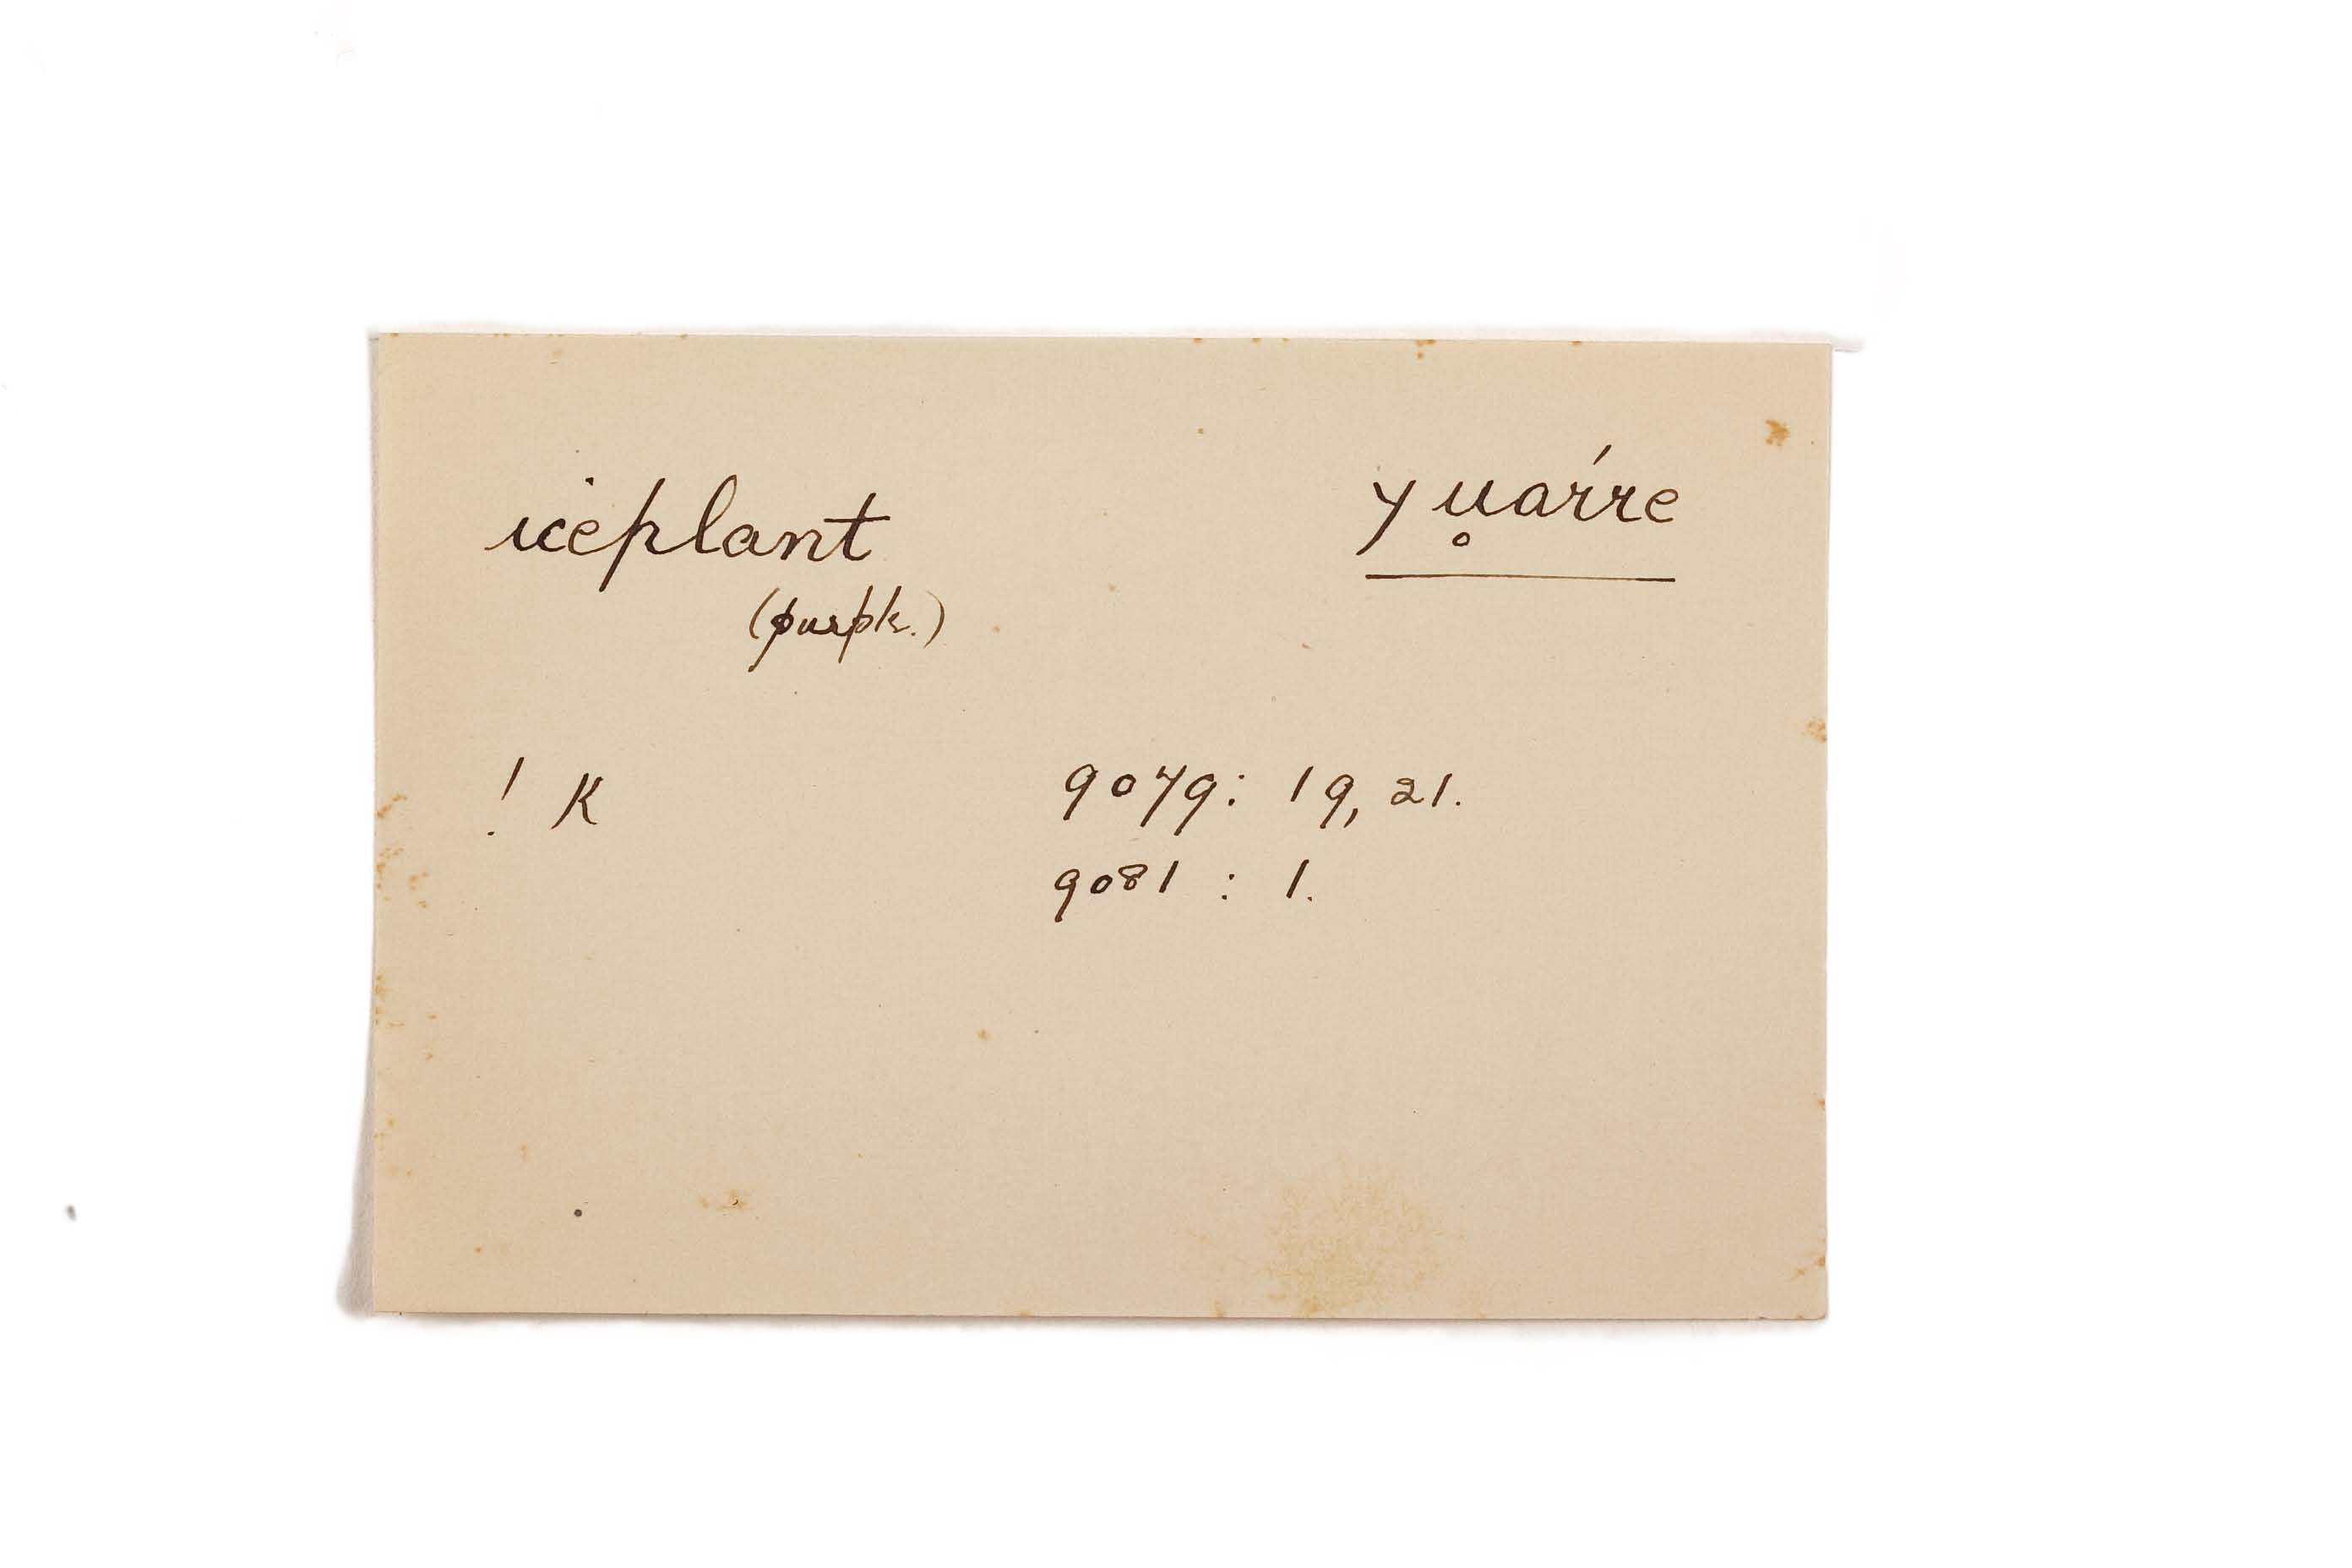 iceplant yu̥árre
(purple.)
! K 9079: 19, 21.
9081 : 1.